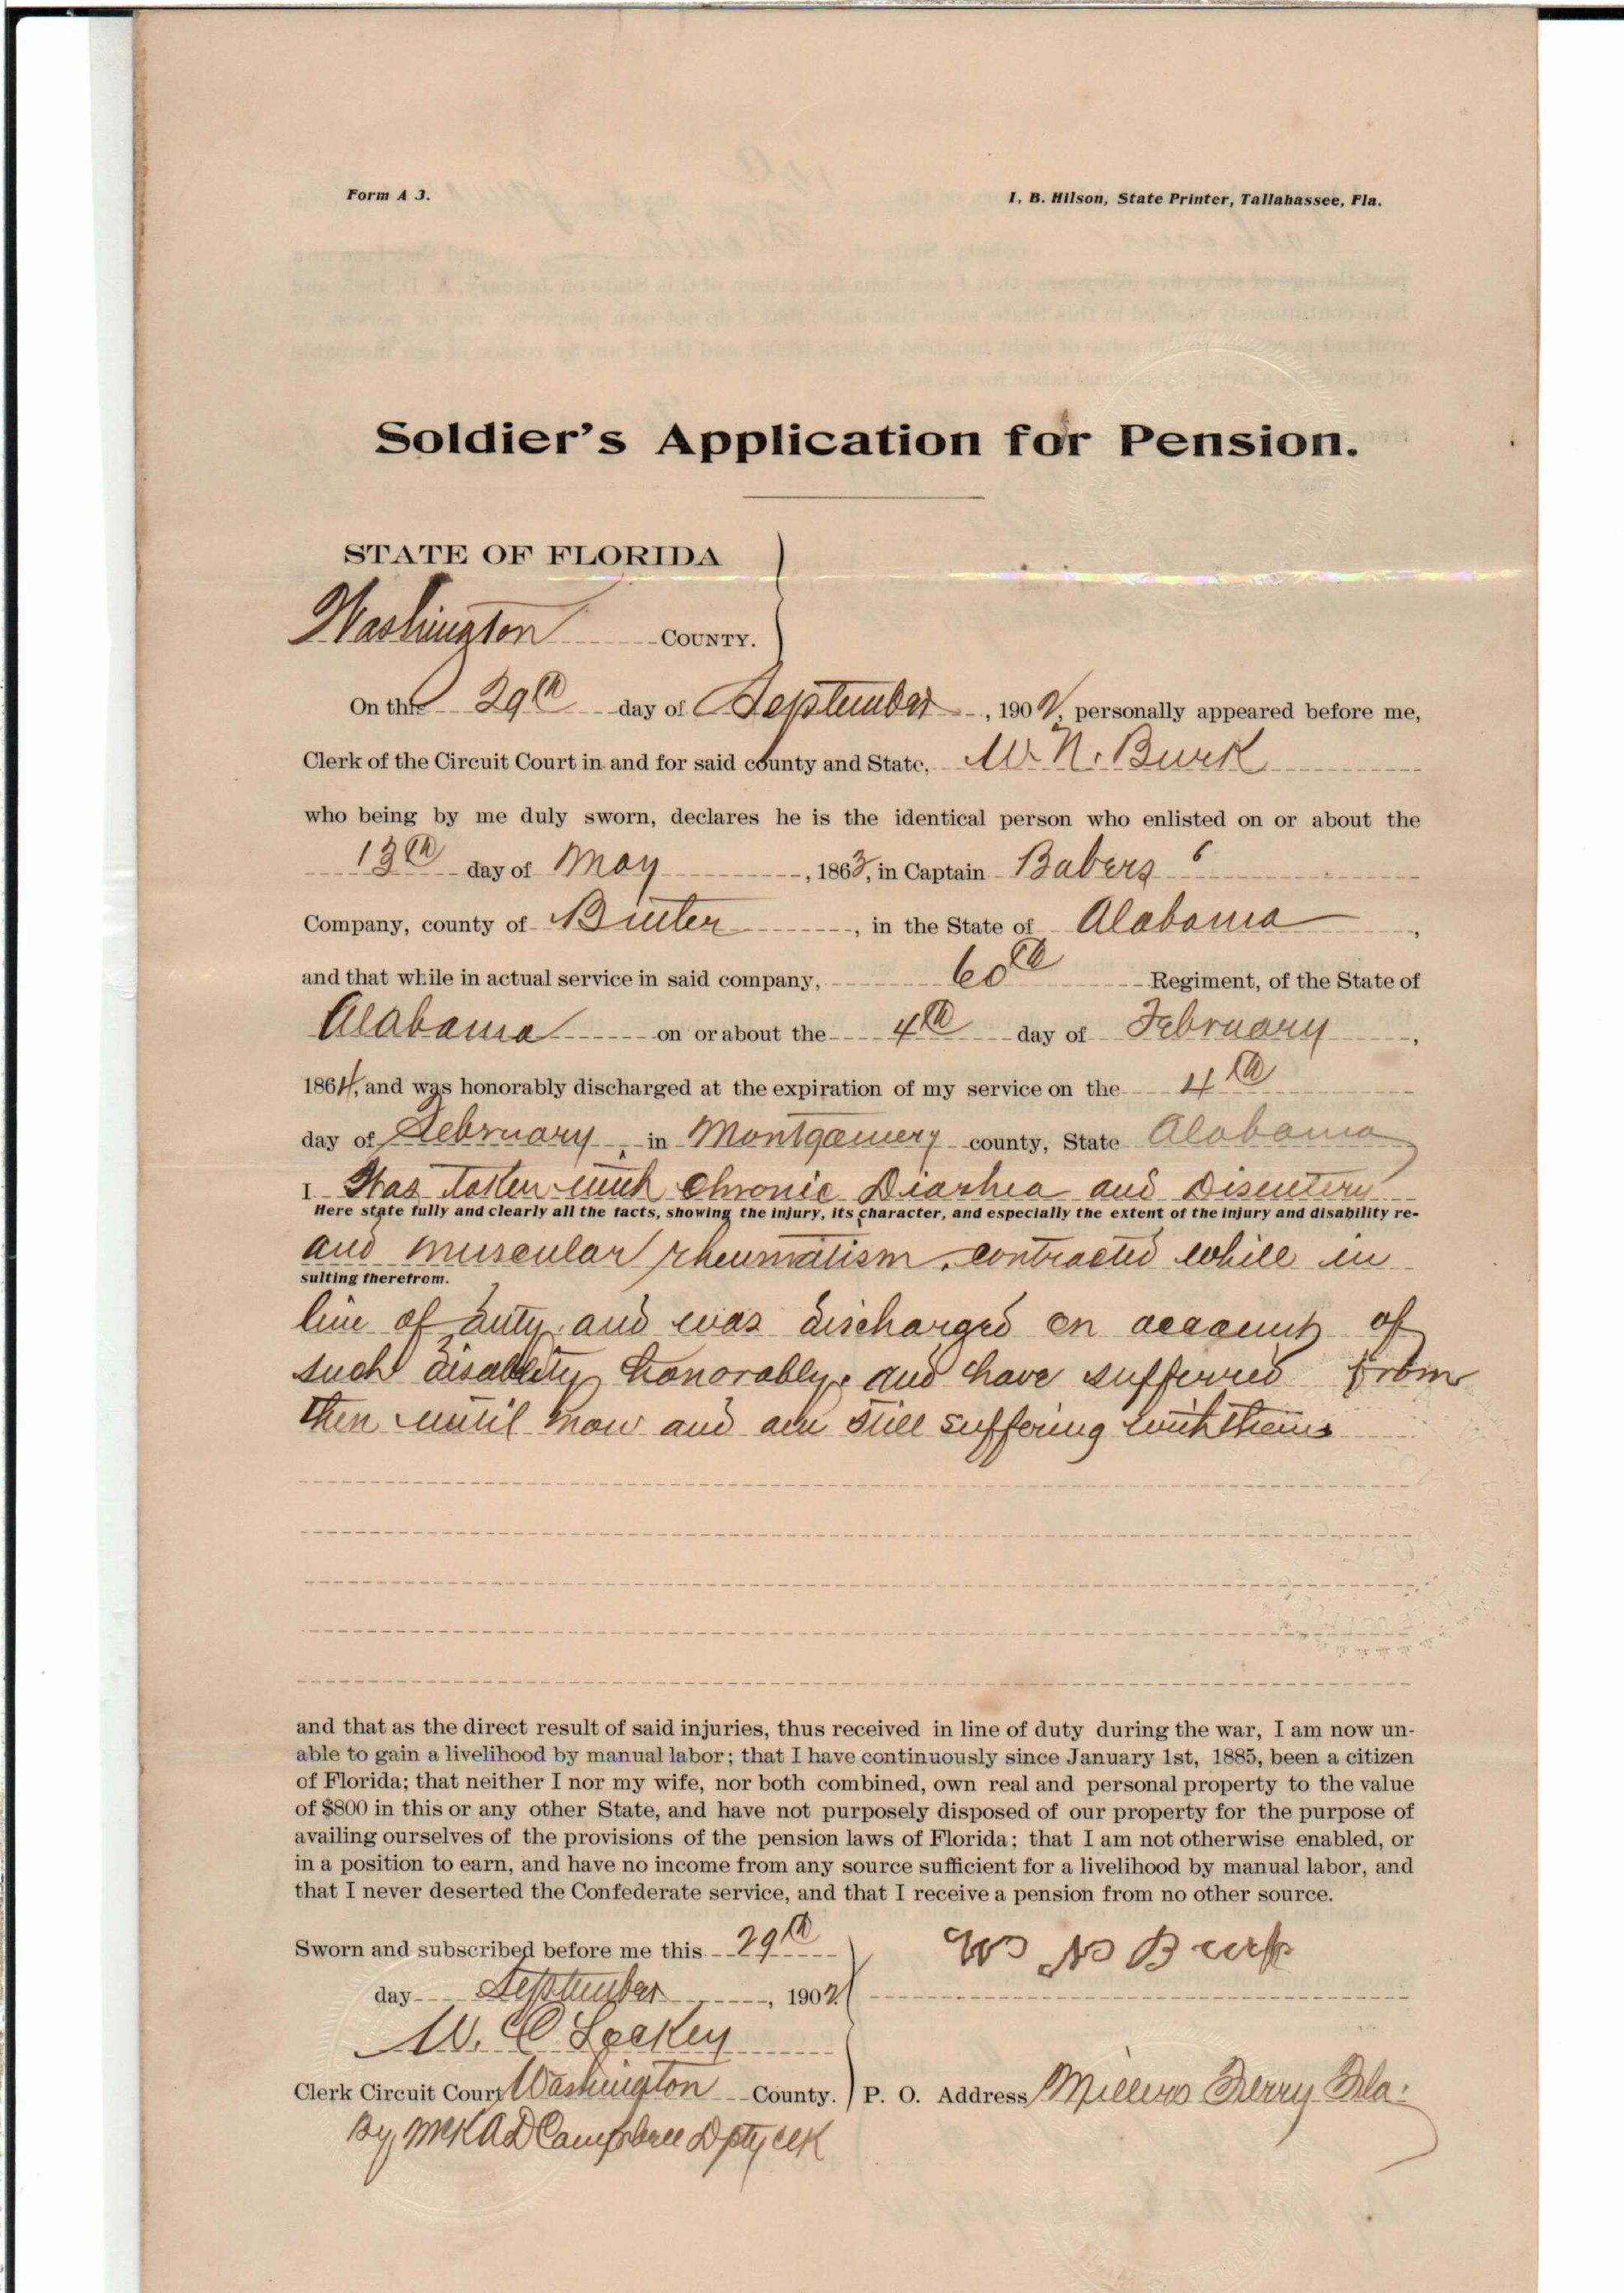 Form A 3.
I. B. Hilson, State Printer, Tallahassee, Fla.
Soldier's Application for Pension.
STATE OF FLORIDA
Washington COUNTY.
On this 29th day of September, 1902, personally appeared before me,
Clerk of the Circuit Court in and for said county and State, W. N. Burk
who being by me duly sworn, declares he is the identical person who enlisted on or about the
13th day of May, 1863, in Captain Babers
Company, county of Butler, in the State of Alabama,
and that while in actual service in said company, 60th Regiment, of the State of
Alabama on or about the 4th day of February,
1864, and was honorably discharged at the expiration of my service on the 4th
day of February, in Montgomery county, State Alabama
I Was taken with Chronic Diarhea and Disentery
Here state fully and clearly all the facts, showing the injury, its character, and especially the extent of the injury and disability re-
and muscular rheumatism, contracted while in
sulting therefrom.
line of duty, and was discharged on account of
such disability honorably, and have sufferred from
then until now and am still suffering with them
and that as the direct result of said injuries, thus received in line of duty during the war, I am now un-
able to gain a livelihood by manual labor; that I have continuously since January 1st, 1885, been a citizen
of Florida; that neither I nor my wife, nor both combined, own real and personal property to the value
of $800 in this or any other State, and have not purposely disposed of our property for the purpose of
availing ourselves of the provisions of the pension laws of Florida; that I am not otherwise enabled, or
in a position to earn, and have no income from any source sufficient for a livelihood by manual labor, and
that I never deserted the Confederate service, and that I receive a pension from no other source.
Sworn and subscribed before me this 29th
W N Burk
day September, 1902
W. C. Lockey
Clerk Circuit Court Washington County.
P. O. Address Millers Ferry Fla.
By Campbell Dpty clk